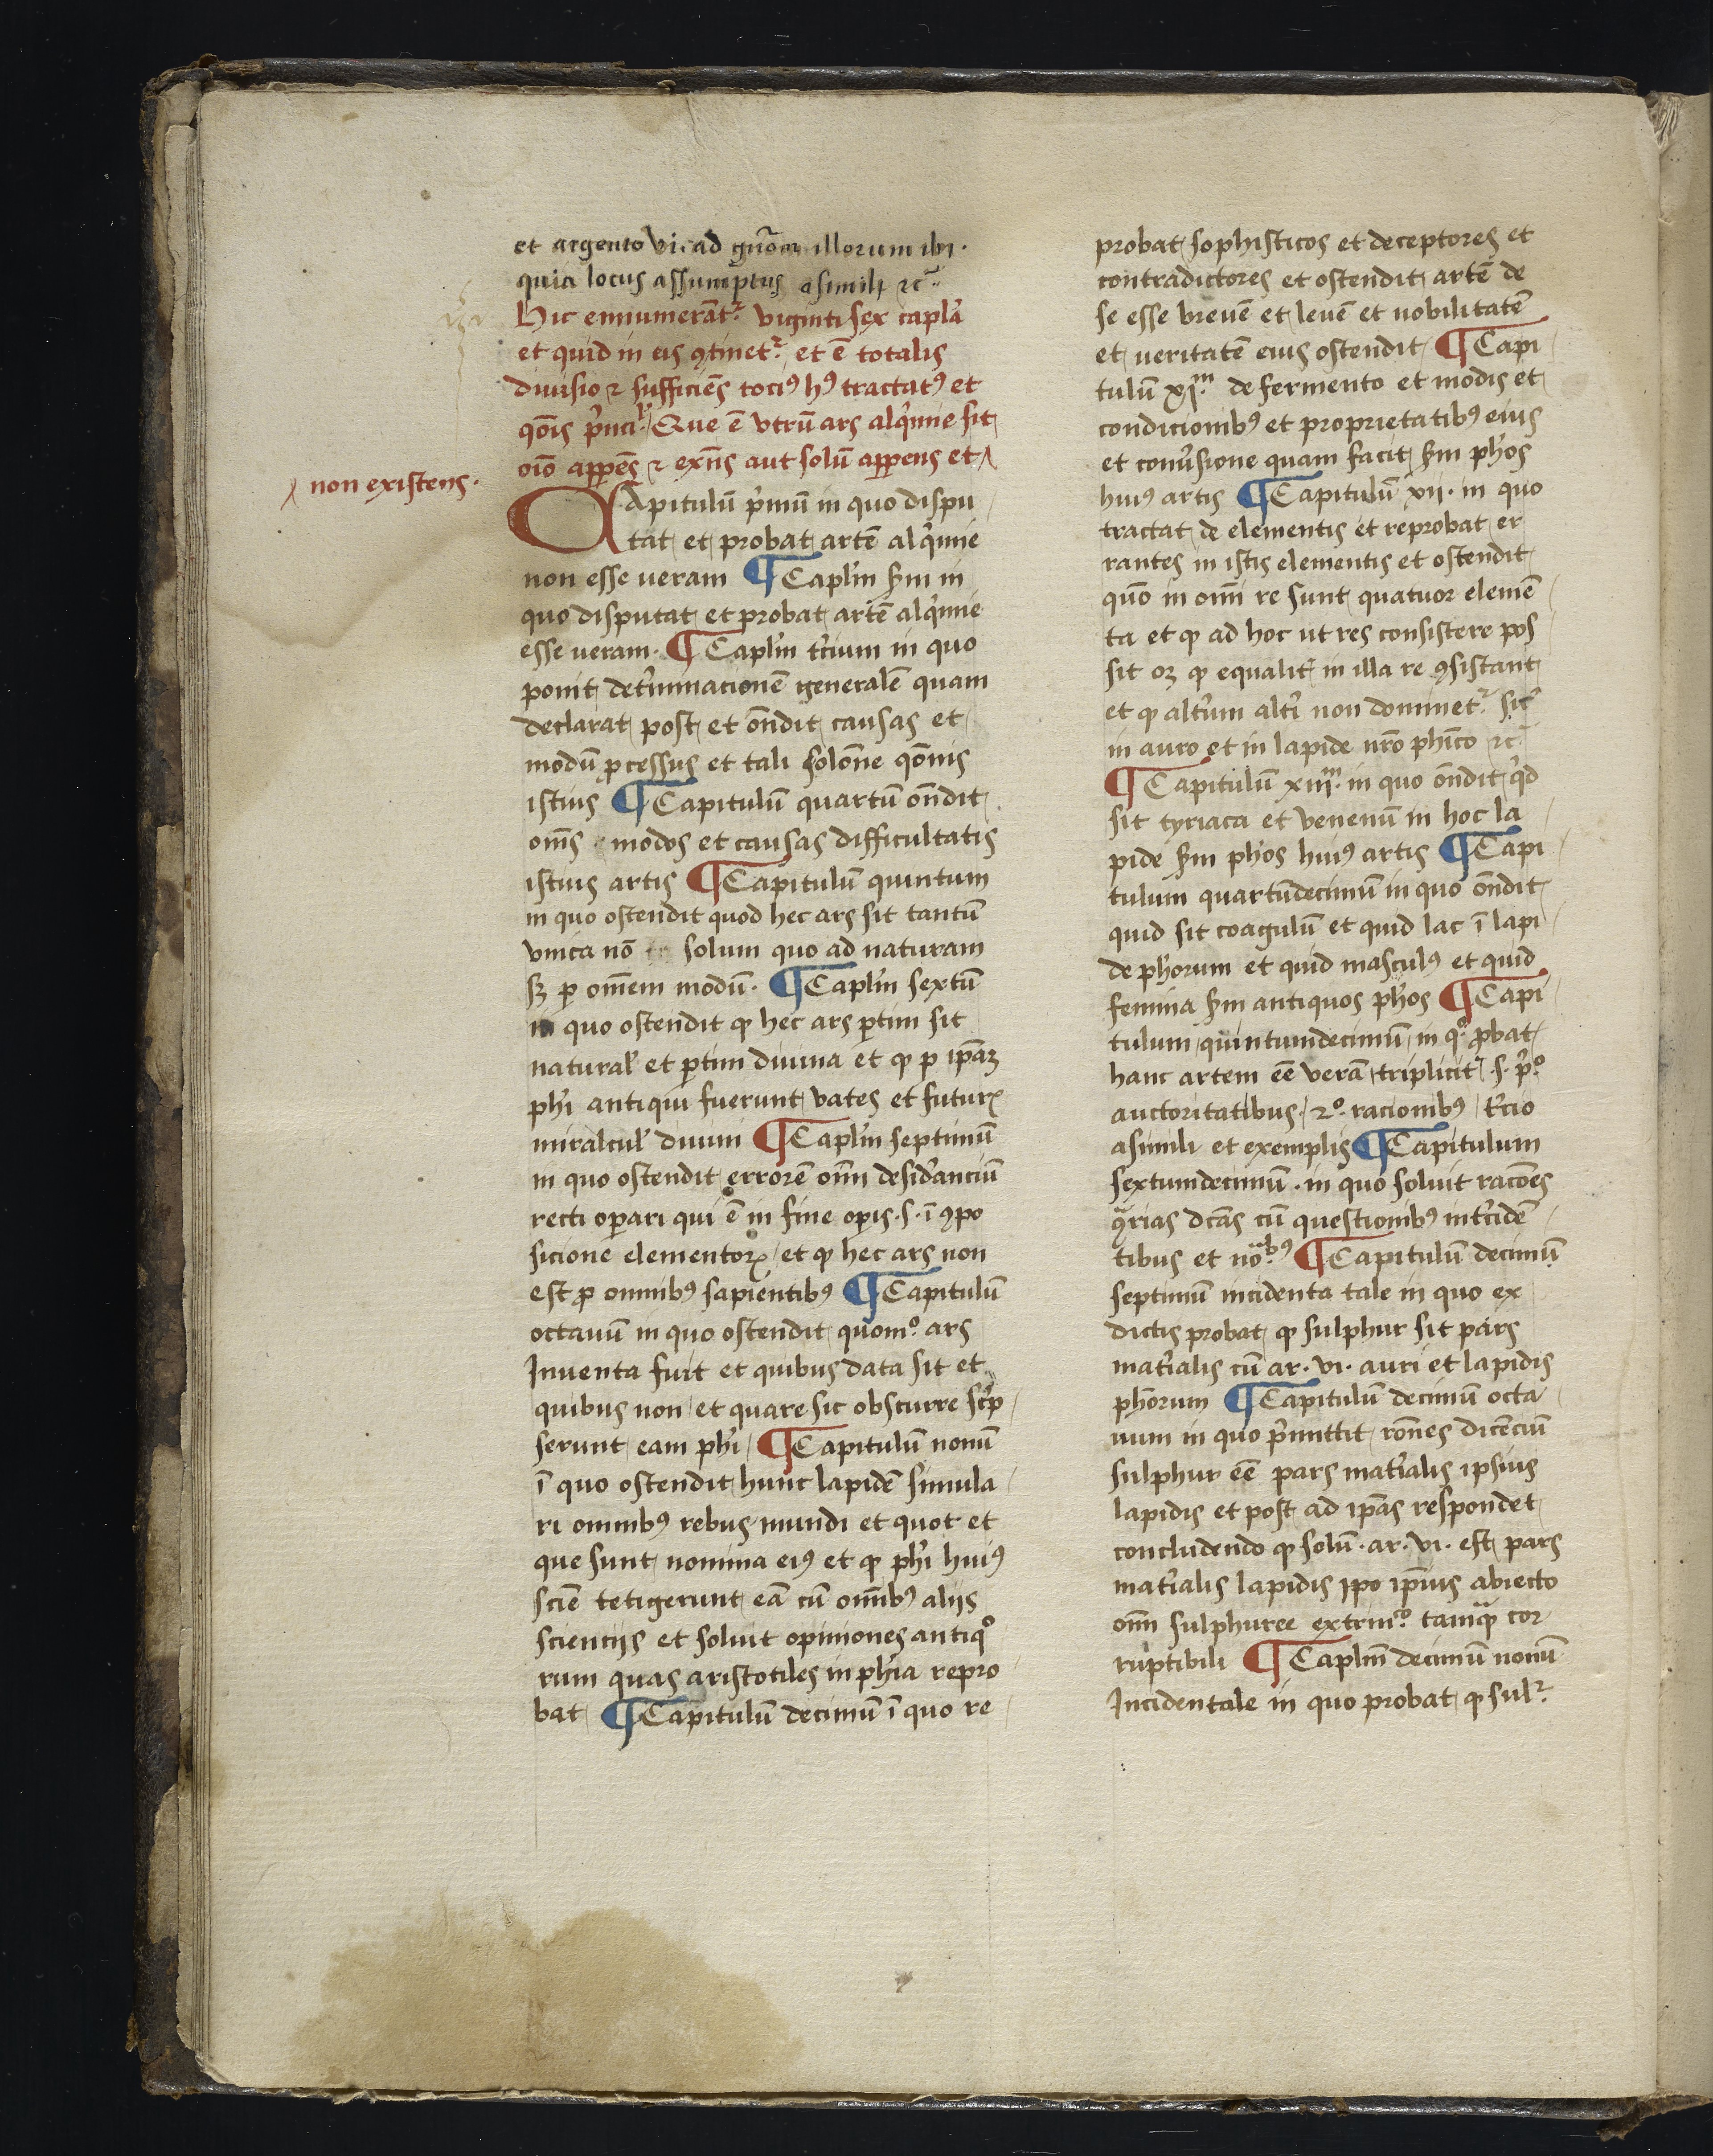 et argento vi. ad gn̄om illorum ibi.
quia locus assumptus a simili ⁊cͣ.
Hic enumerāt᷑ viginti sex capla
et quid in eis ꝯtinet᷑ et ē totalis
diuisio ⁊ sufficiēs tociꝰ hꝰ tractatꝰ et
qōis pͥncil᷑. Que ē vtrū ars alqͥmie sit
oīo appēs ⁊ exn̄s aut solū apprens et ⁁
⁁ non existens.
CApitulū pͥmū in quo dispu
tat et probat artē alqͥmie
non esse ueram ¶ Caplm̄ ẜm in
quo disputat et probat artē alqͥmie
esse ueram. ¶ Caplm̄ tͥcium in quo
ponit det̓minacionē generalē quam
declarat post et on̄dit causas et
modū ꝓcessus et tali solōne qōnis
istius ¶ Capitulū quartū on̄dit
om̄s modos et causas difficultatis
istius artis ¶ Capitulū quintum
in quo ostendit quod hec ars sit tantū
vnica nō solum quo ad naturam
sꝫ ꝑ om̄em modū. ¶ Caplm̄ sextū
in quo ostendit ꝙ hec ars ꝑtim sit
natural᷑ et ꝑtim diuina et ꝙ ꝑ ip̄aꝫ
ph̄i antiqui fuerunt vates et futurꝝ
miralcul᷑ diuini ¶ Caplm̄ septimū
in quo ostendit errorē om̄i desid̓anciū
recti oꝑari qui ē in fine oꝑis .s. ī ꝯpo
sicione elementorꝝ et ꝙ hec ars non
est ꝓ omnibꝰ sapientibꝰ ¶ Capitulū
octauū in quo ostendit quomͦ. ars
Inuenta fuit et quibus data sit et
quibus non et quare sic obscurre scͥp
serunt eam ph̄i ¶ Capitulū nonū
ī quo ostendit hunc lapidē simula
ri omnibꝰ rebus mundi et quot et
que sunt nomina eiꝰ et ꝙ ph̄i huiꝰ
sciē tetigerunt eā cū om̄ibꝰ alijs
sciencijs et soluit opiniones antiqͦ
rum quas aristotiles in ph̄ia repro
bat ¶ Capitulū decimū ī quo re
probat sophisticos et deceptores et
contradictores et ostendit artē de
se esse breuē et leuē et nobilitatē
et veritatē eius ostendit ¶ Capi
tulū xjᵐ. de fermento et modis et
condicionibꝰ et proprietatibꝰ eius
et conu̓sione quam facit ẜm ph̄os
huiꝰ artis ¶ Capitulū xij. in quo
tractat de elementis et reprobat er
rantes in istis elementis et ostendit
quō in om̄i re sunt quatuor elemē
ta et ꝙ ad hoc ut res consistere pos
sit oꝫ ꝙ equalit̓ in illa re ꝯsistant
et ꝙ alt̓um alt̓i non dominet᷑ sic᷑
in auro et in lapide nr̄o ph̄ico ⁊c
¶ Capitulū xiijᵐ. in quo on̄dit qͥd
sit tyriaca et venenū in hoc la
pide ẜm ph̄os huiꝰ artis ¶ Capi
tulum quartūdecimū in quo on̄dit
quid sit coagulū et quid lac ī lapi
de ph̄orum et quid masculꝰ et quid
femina ẜm antiquos ph̄os ¶ Capi
tulum quintumdecimū in qͦ. ꝓbat
hanc artem eē̄ verā triplicit̓ .s. pͥͦ.
auctoritatibus. 2ͦ. racionibꝰ tͥcio
a simili et exemplis ¶ Capitulum
sextumdecimū. in quo soluit racōes
ꝯͣrias dc̄as cū questionibꝰ int̓cidē
tibus et noͣbꝰ. ¶ Capitulū decimū
septimū incidenta tale in quo ex
dictis probat ꝙ sulphur sit pars
mat̓ialis cū ar. vi. auri et lapidis
ph̄orum ¶ Capitulū decimū octa
uum in quo p̄mittit rōnes dicēciū
sulphur eē̄ pars mat̓ialis ipsius
lapidis et post ad ip̄as respondet
concludendo ꝙ solū .ar. vi. est pars
mat̓ialis lapidis ipo ip̄ius abiecto
om̄i sulphuree extrinͦ. tamqͣ cor
ruptibili ¶ Caplm̄ decimū nonū
Incidentale in quo probat ꝙ sul᷑.